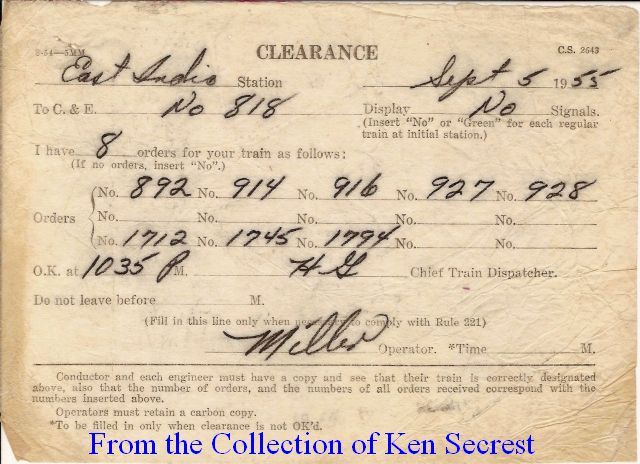 8-54—5MM. CLEARANCE C.S. 2643
East Indio Station Sept 5 1955
To C. & E. No 818 Display No Signals.
(Insert "No" or "Green" for each regular
train at initial station.)
I have 8 orders for your train as follows:
(If no orders, insert "No".)
No. 892 No. 914 No. 916 No. 927 No. 928
Orders No. No. No. No. No.
No. 1712 No. 1745 No. 1794 No. No.
O.K. at 1035 P M. H G Chief Train Dispatcher.
Do not leave before M.
(Fill in this line only when necessary to comply with Rule 221)
Miller Operator. *Time M.
Conductor and each engineer must have a copy and see that their train is correctly designated
above, also that the number of orders, and the numbers of all orders received correspond with the
numbers inserted above.
Operators must retain a carbon copy.
*To be filled in only when clearance is not OK'd.
From the Collection of Ken Secrest